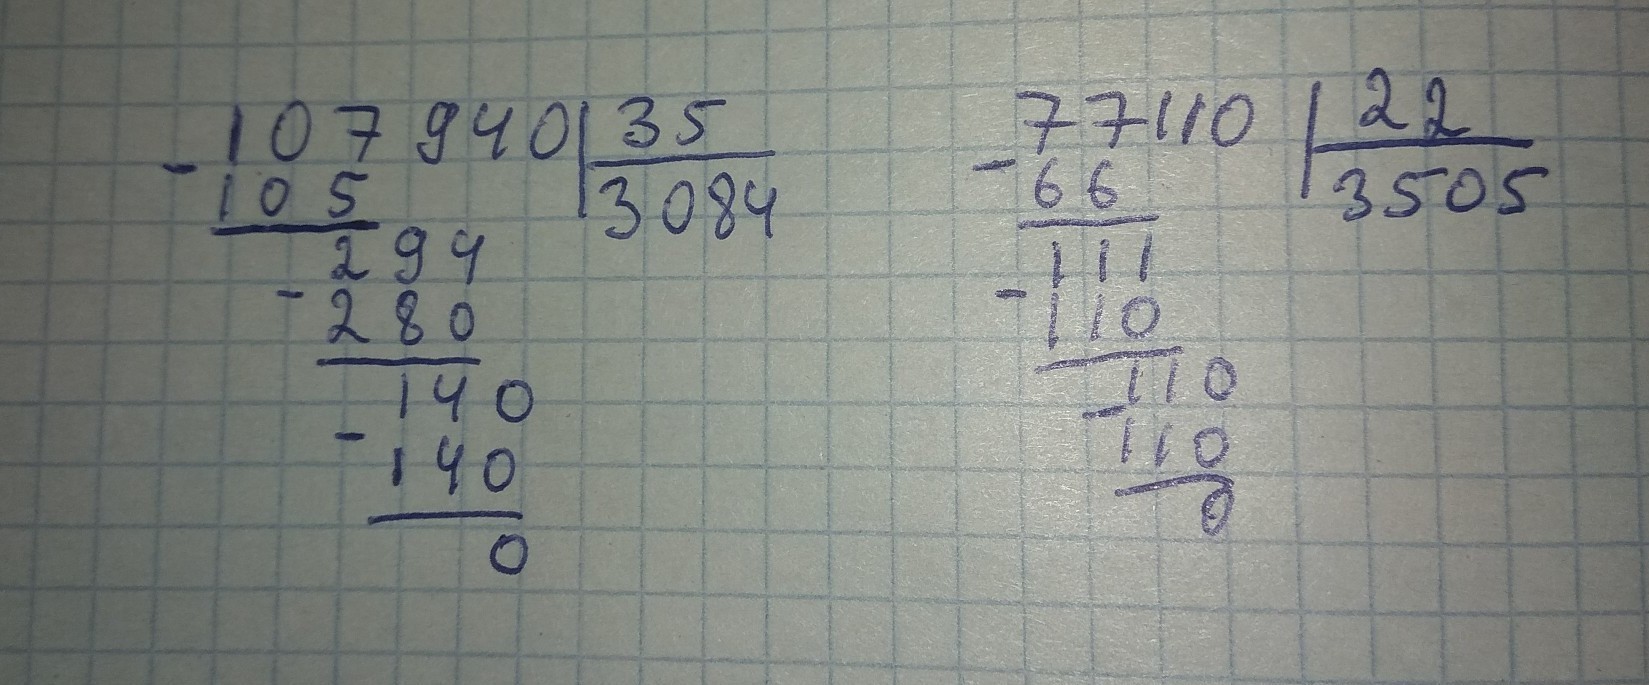 107940 35
- 105 3084
294
- 280
140
- 140
0
77110 22
- 66 3505
111
- 110
110
- 110
0